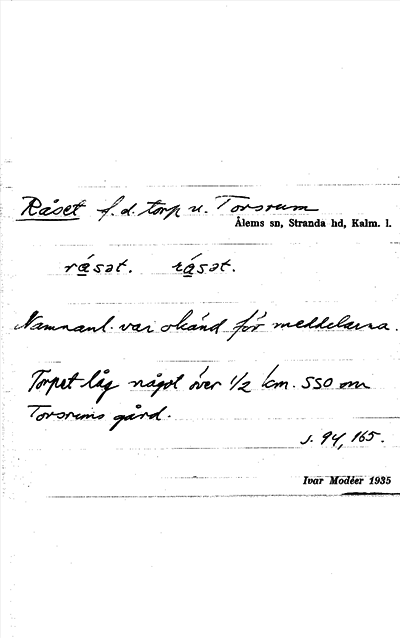 Råset f. d. torp u. Torsrum
Ålems sn, Stranda hd, Kalm. l.
råsət. råsət.
Namnanl. var okänd för meddelarna.
Torpet låg något över 1/2 km. SSO om
Torsrums gård.
s. 94, 165.
Ivar Modéer 1935